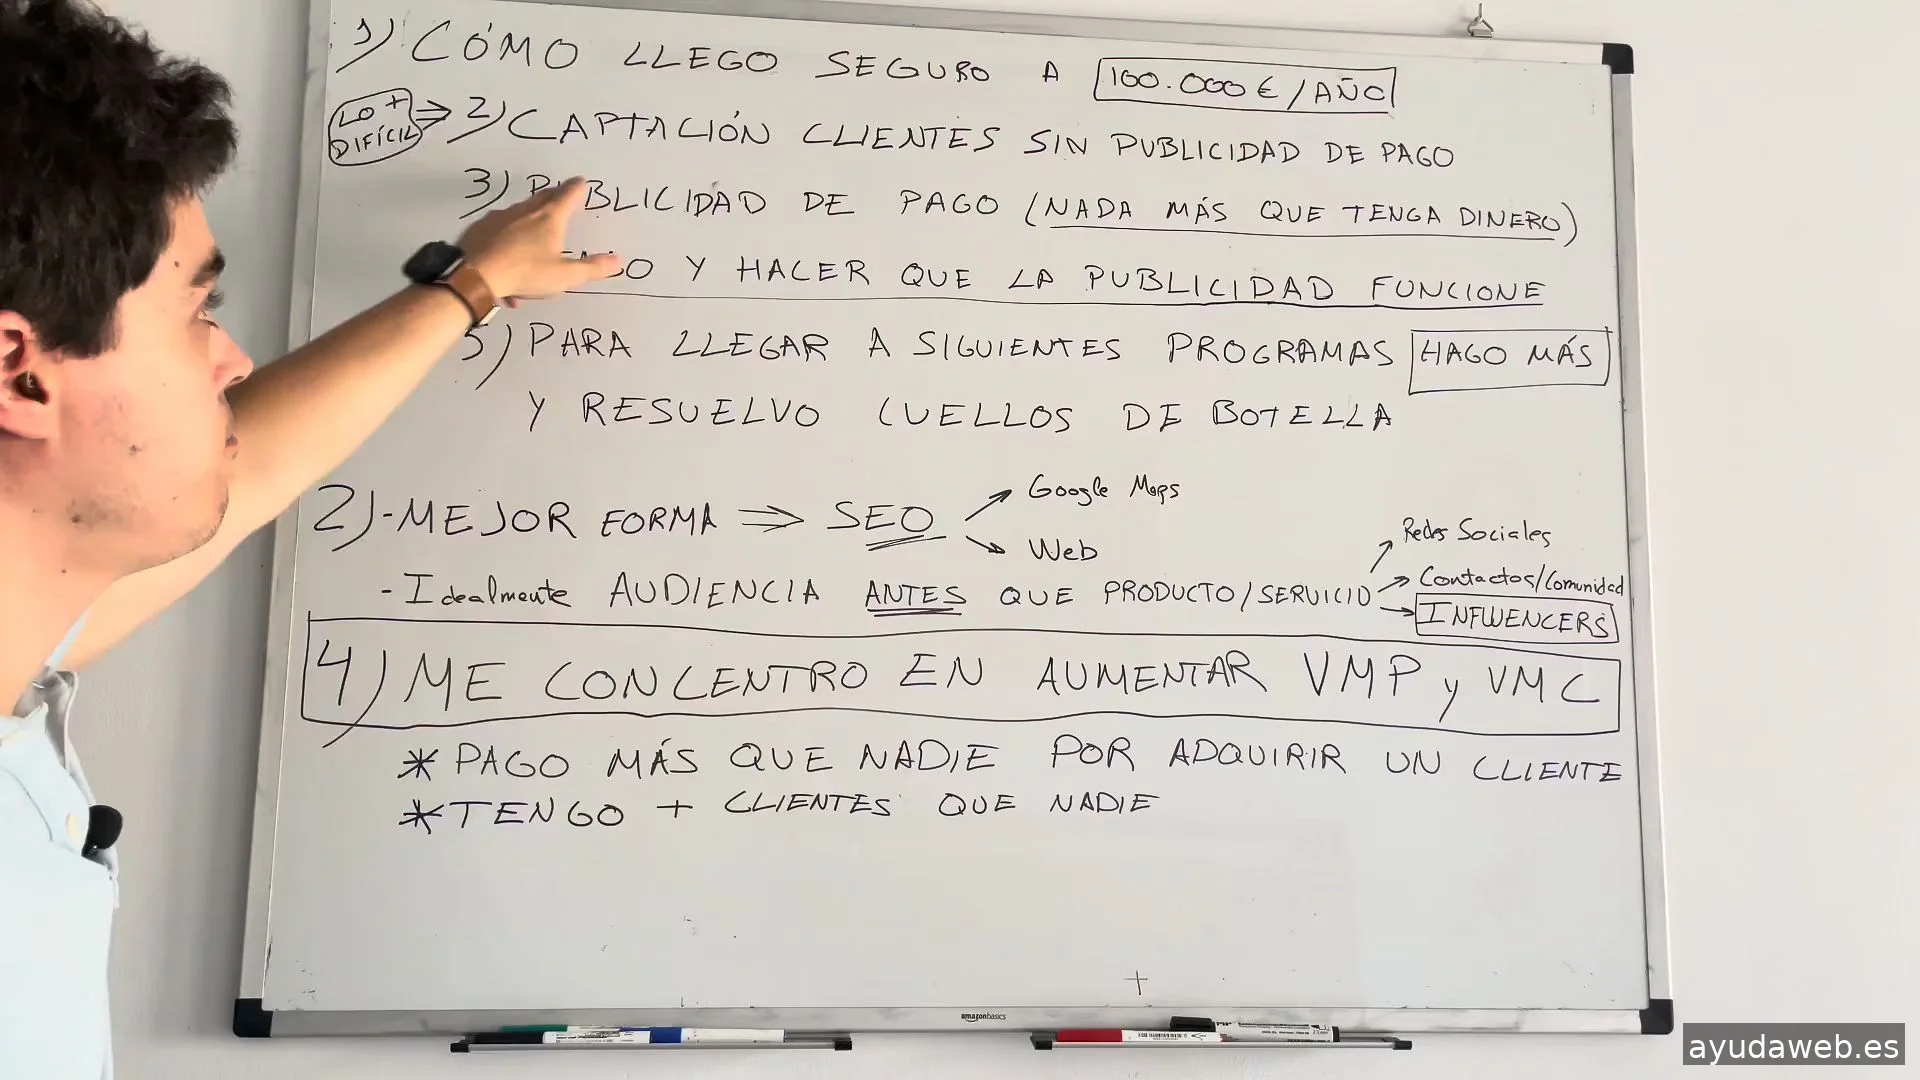 1) CÓMO LLEGO SEGURO A 100.000 € / AÑO
LO + DIFÍCIL ⇒ 2) CAPTACIÓN CLIENTES SIN PUBLICIDAD DE PAGO
3) PUBLICIDAD DE PAGO (NADA MÁS QUE TENGA DINERO)
Y HACER QUE LA PUBLICIDAD FUNCIONE
5) PARA LLEGAR A SIGUIENTES PROGRAMAS HAGO MÁS
Y RESUELVO CUELLOS DE BOTELLA
2) - MEJOR FORMA ⇒ SEO
Google Maps
Web
- Idealmente AUDIENCIA ANTES QUE PRODUCTO/SERVICIO
Redes Sociales
Contactos/Comunidad
INFLUENCERS
4) ME CONCENTRO EN AUMENTAR VMP y VMC
* PAGO MÁS QUE NADIE POR ADQUIRIR UN CLIENTE
* TENGO + CLIENTES QUE NADIE
amazonbasics
ayudaweb.es